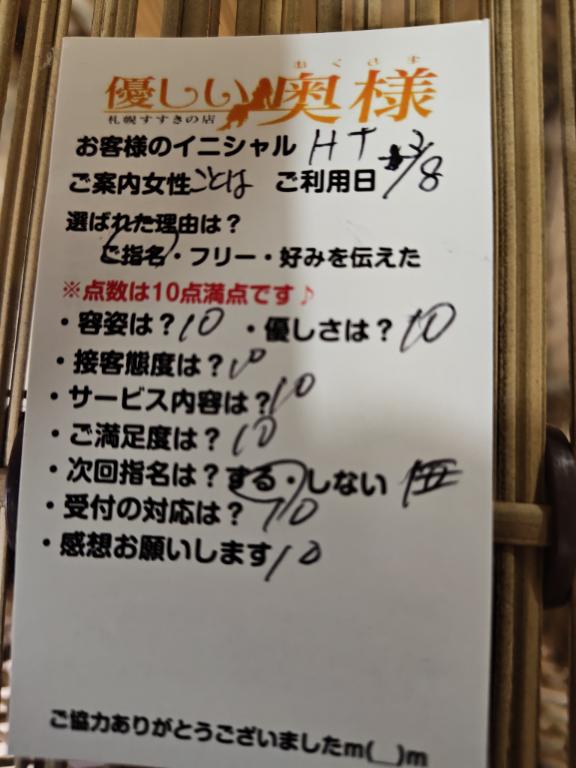 おくさま
優しい奥様
札幌すすきの店
お客様のイニシャル HT
ご案内女性 ことは ご利用日 3/8
選ばれた理由は？
ご指名・フリー・好みを伝えた
※点数は10点満点です♪
・容姿は？10 ・優しさは？10
・接客態度は？10
・サービス内容は？10
・ご満足度は？10
・次回指名は？する・しない
・受付の対応は？10
・感想お願いします10
ご協力ありがとうございましたm(__)m